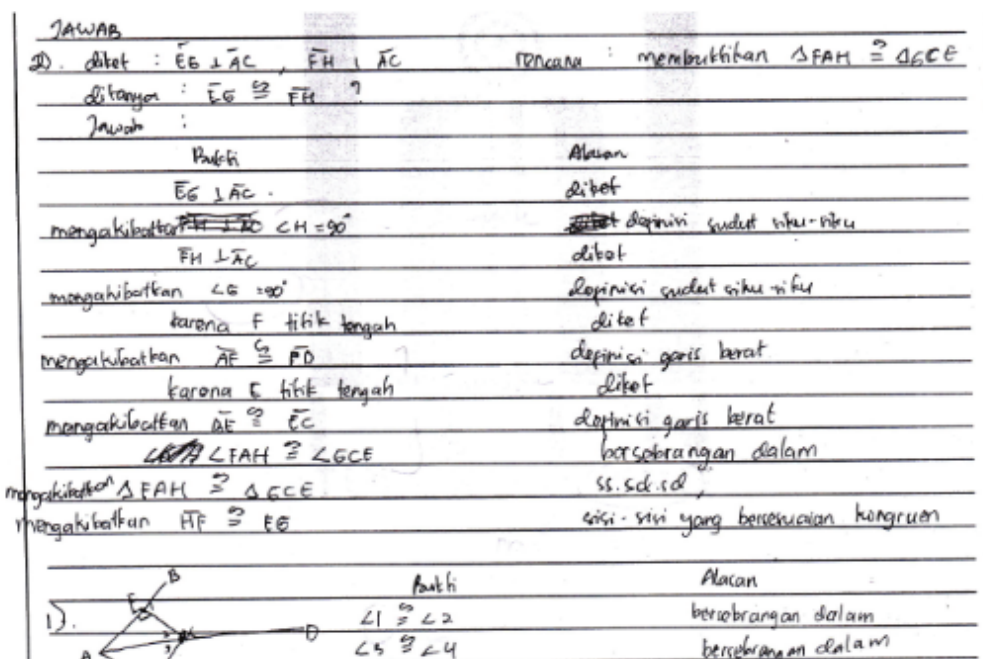 JAWAB
2). diket : EG ⊥ AC , FH ⊥ AC rencana : membuktikan ΔFAH ≅ ΔGCE
ditanya : EG ≅ FH ?
Jawab :
Bukti Alasan
EG ⊥ AC . diket
mengakibatkan ∠H = 90° definisi sudut siku-siku
FH ⊥ AC diket
mengakibatkan ∠G = 90° definisi sudut siku-siku
karena F titik tengah diket
mengakibatkan AF ≅ FD definisi garis berat
karena E titik tengah diket
mengakibatkan ≅ EC definisi garis berat
∠FAH ≅ ∠GCE bersebrangan dalam
mengakibatkan ΔFAH ≅ ΔGCE ss.sd.sd
mengakibatkan HF ≅ EG sisi-sisi yang bersesuaian kongruen
Bukti Alasan
1). B E A D ∠1 ≅ ∠2 bersebrangan dalam
≅ ∠4 bersebrangan dalam